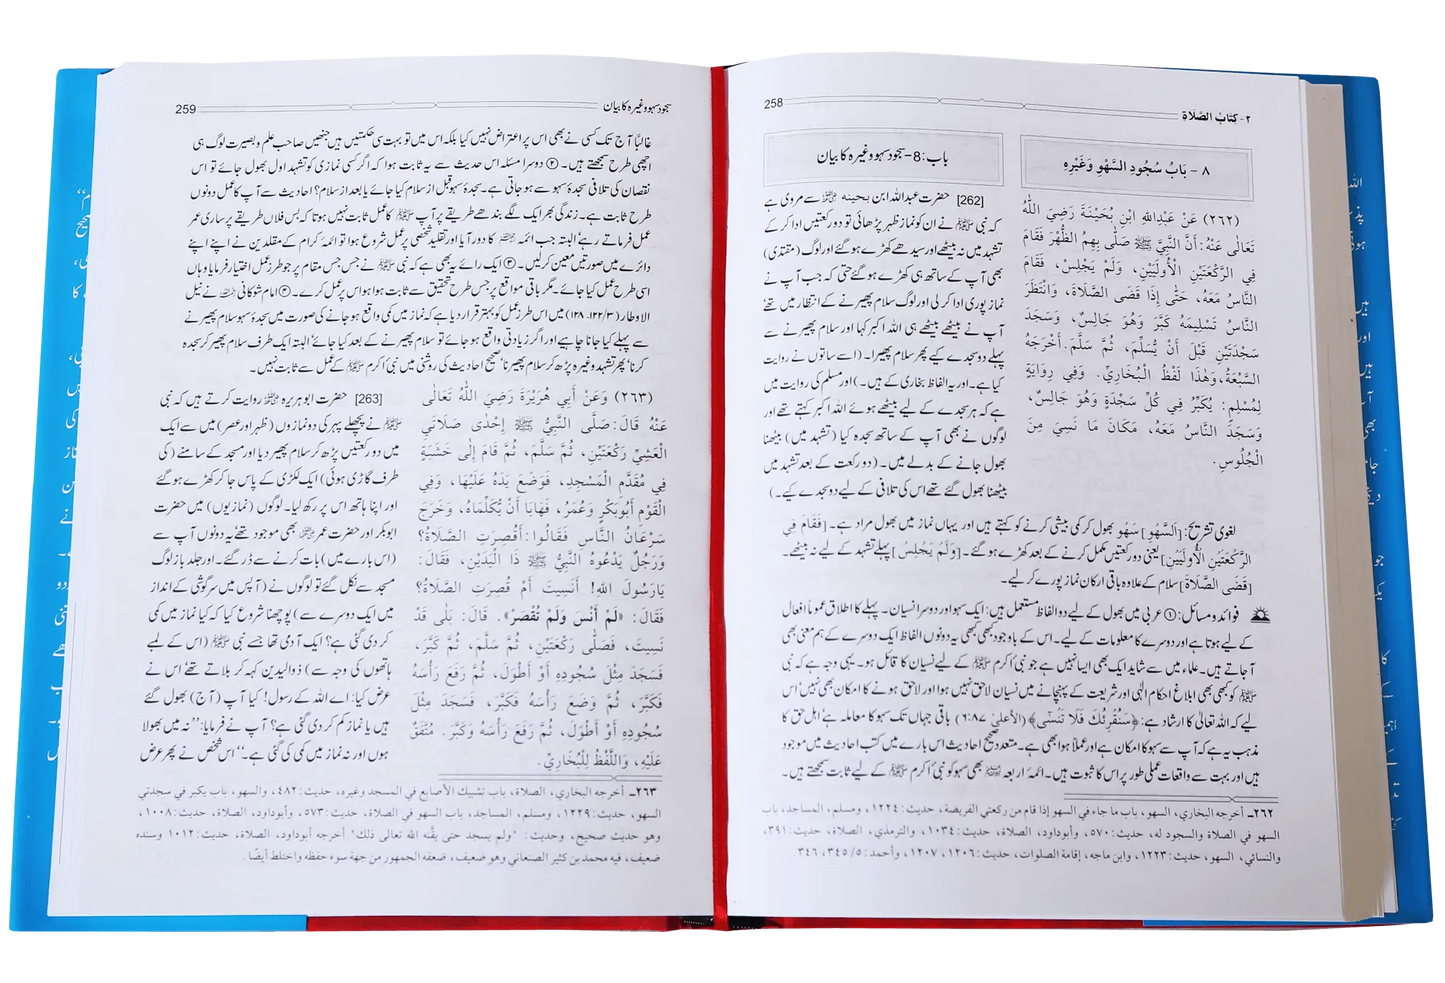 258
٢- كتاب الصلاة
٨ - بَابُ سُجُودِ السَّهْوِ وَغَيْرِهِ
باب:8-سجود سہو وغیرہ کا بیان
(٢٦٢) عَنْ عَبْدِاللهِ ابْنِ بُحَيْنَةَ رَضِيَ اللهُ
تَعَالَى عَنْهُ: أَنَّ النَّبِيَّ ﷺ صَلَّى بِهِمُ الظُّهْرَ فَقَامَ
فِي الرَّكْعَتَيْنِ الْأُولَيَيْنِ، وَلَمْ يَجْلِسْ، فَقَامَ
النَّاسُ مَعَهُ، حَتَّى إِذَا قَضَى الصَّلَاةَ، وَانْتَظَرَ
النَّاسُ تَسْلِيمَهُ كَبَّرَ وَهُوَ جَالِسٌ، وَسَجَدَ
سَجْدَتَيْنِ قَبْلَ أَنْ يُسَلِّمَ، ثُمَّ سَلَّمَ. أَخْرَجَهُ
السَّبْعَةُ، وَهٰذَا لَفْظُ الْبُخَارِيِّ. وَفِي رِوَايَةٍ
لِمُسْلِمٍ: يُكَبِّرُ فِي كُلِّ سَجْدَةٍ وَهُوَ جَالِسٌ،
وَسَجَدَ النَّاسُ مَعَهُ، مَكَانَ مَا نَسِيَ مِنَ
الْجُلُوسِ.
[262] حضرت عبداللہ ابن بحینہ ؓ سے مروی ہے
کہ نبی ﷺ نے ان کو نماز ظہر پڑھائی تو دو رکعتیں ادا کر کے
تشہد میں نہ بیٹھے اور سیدھے کھڑے ہو گئے اور لوگ (مقتدی)
بھی آپ کے ساتھ ہی کھڑے ہو گئے حتی کہ جب آپ نے
نماز پوری ادا کر لی اور لوگ سلام پھیرنے کے انتظار میں تھے
آپ نے بیٹھے بیٹھے ہی اللہ اکبر کہا اور سلام پھیرنے سے
پہلے دو سجدے کیے پھر سلام پھیرا۔ (اسے ساتوں نے روایت
کیا ہے۔ اور یہ الفاظ بخاری کے ہیں۔) اور مسلم کی روایت میں
ہے کہ ہر سجدے کے لیے بیٹھے ہوئے اللہ اکبر کہتے تھے اور
لوگوں نے بھی آپ کے ساتھ سجدہ کیا (تشہد میں) بیٹھنا
بھول جانے کے بدلے میں۔ (دو رکعت کے بعد تشہد میں
بیٹھنا بھول گئے تھے اس کی تلافی کے لیے دو سجدے کیے۔)
لغوی تشریح: [اَلسَّهْوِ] سَهْو بھول کر کمی بیشی کرنے کو کہتے ہیں اور یہاں نماز میں بھول مراد ہے۔ [فَقَامَ فِي
الرَّكْعَتَيْنِ الْأُولَيَيْنِ] یعنی دو رکعتیں مکمل کرنے کے بعد کھڑے ہو گئے۔ [وَلَمْ يَجْلِسْ] پہلے تشہد کے لیے نہ بیٹھے۔
[قَضَى الصَّلَاةَ] سلام کے علاوہ باقی ارکان نماز پورے کر لیے۔
فوائد ومسائل: ① عربی میں بھول کے لیے دو الفاظ مستعمل ہیں: ایک سہو اور دوسرا نسیان۔ پہلے کا اطلاق عموماً افعال
کے لیے ہوتا ہے اور دوسرے کا معلومات کے لیے۔ اس کے باوجود کبھی کبھی یہ دونوں الفاظ ایک دوسرے کے ہم معنی بھی
آ جاتے ہیں۔ علماء میں سے شاید ایک بھی ایسا نہیں ہے جو نبی اکرم ﷺ کے لیے نسیان کا قائل ہو۔ یہی وجہ ہے کہ نبی
ﷺ کو کبھی بھی ابلاغ احکام الٰہی اور شریعت کے پہنچانے میں نسیان لاحق نہیں ہوا اور لاحق ہونے کا امکان بھی نہیں اس
لیے کہ اللہ تعالیٰ کا ارشاد ہے: ﴿سَنُقْرِئُكَ فَلَا تَنْسٰى﴾ (الأعلیٰ ٦:٨٧) باقی جہاں تک سہو کا معاملہ ہے اہل حق کا
مذہب یہ ہے کہ آپ سے سہو کا امکان ہے اور عملاً ہوا بھی ہے۔ متعدد صحیح احادیث اس بارے میں کتب احادیث میں موجود
ہیں اور بہت سے واقعات عملی طور پر اس کا ثبوت ہیں۔ ائمہ اربعہ بھی سہو کو نبی اکرم ﷺ کے لیے ثابت سمجھتے ہیں۔
٢٦٢ـ أخرجه البخاري، السهو، باب ما جاء في السهو إذا قام من ركعتي الفريضة، حديث: ١٢٢٤، ومسلم، المساجد، باب
السهو في الصلاة والسجود له، حديث: ٥٧٠، وأبوداود، الصلاة، حديث: ١٠٣٤، والترمذي، الصلاة، حديث: ٣٩١،
والنسائي، السهو، حديث: ١٢٢٣، وابن ماجه، إقامة الصلوات، حديث: ١٢٠٦، ١٢٠٧، وأحمد: ٥/ ٣٤٥، ٣٤٦.
259
سجود سہو وغیرہ کا بیان
غالباً آج تک کسی نے بھی اس پر اعتراض نہیں کیا بلکہ اس میں تو بہت سی حکمتیں ہیں جنھیں صاحب علم و بصیرت لوگ ہی
اچھی طرح سمجھتے ہیں۔ ② دوسرا مسئلہ اس حدیث سے یہ ثابت ہوا کہ اگر کسی نمازی کو تشہد اول بھول جائے تو اس
نقصان کی تلافی سجدۂ سہو سے ہو جاتی ہے۔ سجدۂ سہو قبل از سلام کیا جائے یا بعد از سلام؟ احادیث سے آپ کا عمل دونوں
طرح ثابت ہے۔ زندگی بھر ایک لگے بندھے طریقے پر آپ ﷺ کا عمل ثابت نہیں ہوتا کہ بس فلاں طریقے پر ساری عمر
عمل فرماتے رہے البتہ جب ائمہ کا دور آیا اور تقلید شخصی پر عمل شروع ہوا تو ائمہ کرام کے مقلدین نے اپنے اپنے
دائرے میں صورتیں معین کر لیں۔ ③ ایک رائے یہ بھی ہے کہ نبی ﷺ نے جس جس مقام پر جو طرز عمل اختیار فرمایا وہاں
اسی طرح عمل کیا جائے۔ مگر باقی مواقع پر جس طرح تحقیق سے ثابت ہوا ہو اس پر عمل کرے۔ ④ امام شوکانی نے نیل
الاوطار (٣/١٢٢-١٢٨) میں اس طرز عمل کو بہتر قرار دیا ہے کہ نماز میں کمی واقع ہو جانے کی صورت میں سجدۂ سہو سلام پھیرنے
سے پہلے کیا جانا چاہیے اور اگر زیادتی واقع ہو جائے تو سلام پھیرنے کے بعد کیا جائے البتہ ایک طرف سلام پھیر کر سجدہ
کرنا پھر تشہد وغیرہ پڑھ کر سلام پھیرنا صحیح احادیث کی روشنی میں نبی اکرم ﷺ کے عمل سے ثابت نہیں۔
(٢٦٣) وَعَنْ أَبِي هُرَيْرَةَ رَضِيَ اللهُ تَعَالَى
عَنْهُ قَالَ: صَلَّى النَّبِيُّ ﷺ إِحْدَى صَلَاتَيِ
الْعَشِيِّ رَكْعَتَيْنِ، ثُمَّ سَلَّمَ، ثُمَّ قَامَ إِلَى خَشَبَةٍ
فِي مُقَدَّمِ الْمَسْجِدِ، فَوَضَعَ يَدَهُ عَلَيْهَا، وَفِي
الْقَوْمِ أَبُوبَكْرٍ وَعُمَرُ، فَهَابَا أَنْ يُكَلِّمَاهُ، وَخَرَجَ
سَرْعَانُ النَّاسِ فَقَالُوا: أَقُصِرَتِ الصَّلَاةُ؟
وَرَجُلٌ يَدْعُوهُ النَّبِيُّ ﷺ ذَا الْيَدَيْنِ، فَقَالَ:
يَارَسُولَ اللهِ! أَنَسِيتَ أَمْ قُصِرَتِ الصَّلَاةُ؟
فَقَالَ: «لَمْ أَنْسَ وَلَمْ تُقْصَرْ». قَالَ: بَلٰى قَدْ
نَسِيتَ، فَصَلَّى رَكْعَتَيْنِ، ثُمَّ سَلَّمَ، ثُمَّ كَبَّرَ،
فَسَجَدَ مِثْلَ سُجُودِهِ أَوْ أَطْوَلَ، ثُمَّ رَفَعَ رَأْسَهُ
فَكَبَّرَ، ثُمَّ وَضَعَ رَأْسَهُ فَكَبَّرَ، فَسَجَدَ مِثْلَ
سُجُودِهِ أَوْ أَطْوَلَ، ثُمَّ رَفَعَ رَأْسَهُ وَكَبَّرَ. مُتَّفَقٌ
عَلَيْهِ، وَاللَّفْظُ لِلْبُخَارِيِّ.
[263] حضرت ابوہریرہ ؓ روایت کرتے ہیں کہ نبی
ﷺ نے پچھلے پہر کی دو نمازوں (ظہر اور عصر) میں سے ایک
میں دو رکعتیں پڑھ کر سلام پھیر دیا اور مسجد کے سامنے (کی
طرف گاڑی ہوئی) ایک لکڑی کے پاس جا کر کھڑے ہو گئے
اور اپنا ہاتھ اس پر رکھ لیا۔ لوگوں (نمازیوں) میں حضرت
ابوبکر اور حضرت عمر بھی موجود تھے یہ دونوں آپ سے
(اس بارے میں) بات کرنے سے ڈر گئے۔ اور جلد باز لوگ
مسجد سے نکل گئے تو لوگوں نے (آپس میں سرگوشی کے انداز
میں ایک دوسرے سے) پوچھنا شروع کیا کہ کیا نماز میں کمی
کر دی گئی ہے؟ ایک آدمی تھا جسے نبی ﷺ (اس کے لمبے
ہاتھوں کی وجہ سے) ذوالیدین کہہ کر بلاتے تھے اس نے
عرض کیا: اے اللہ کے رسول! کیا آپ (آج) بھول گئے
ہیں یا نماز کم کر دی گئی ہے؟ آپ نے فرمایا: ”نہ میں بھولا
ہوں اور نہ نماز میں کمی کی گئی ہے۔“ اس شخص نے پھر عرض
٢٦٣ـ أخرجه البخاري، الصلاة، باب تشبيك الأصابع في المسجد وغيره، حديث: ٤٨٢، والسهو، باب يكبر في سجدتي
السهو، حديث: ١٢٢٩، ومسلم، المساجد، باب السهو في الصلاة، حديث: ٥٧٣، وأبوداود، الصلاة، حديث: ١٠٠٨،
وهو حديث صحيح، وحديث: "ولم يسجد حتى يقّنه الله تعالى ذلك" أخرجه أبوداود، الصلاة، حديث: ١٠١٢ وسنده
ضعيف، فيه محمد بن كثير الصنعاني وهو ضعيف، ضعفه الجمهور من جهة سوء حفظه واختلط أيضًا.